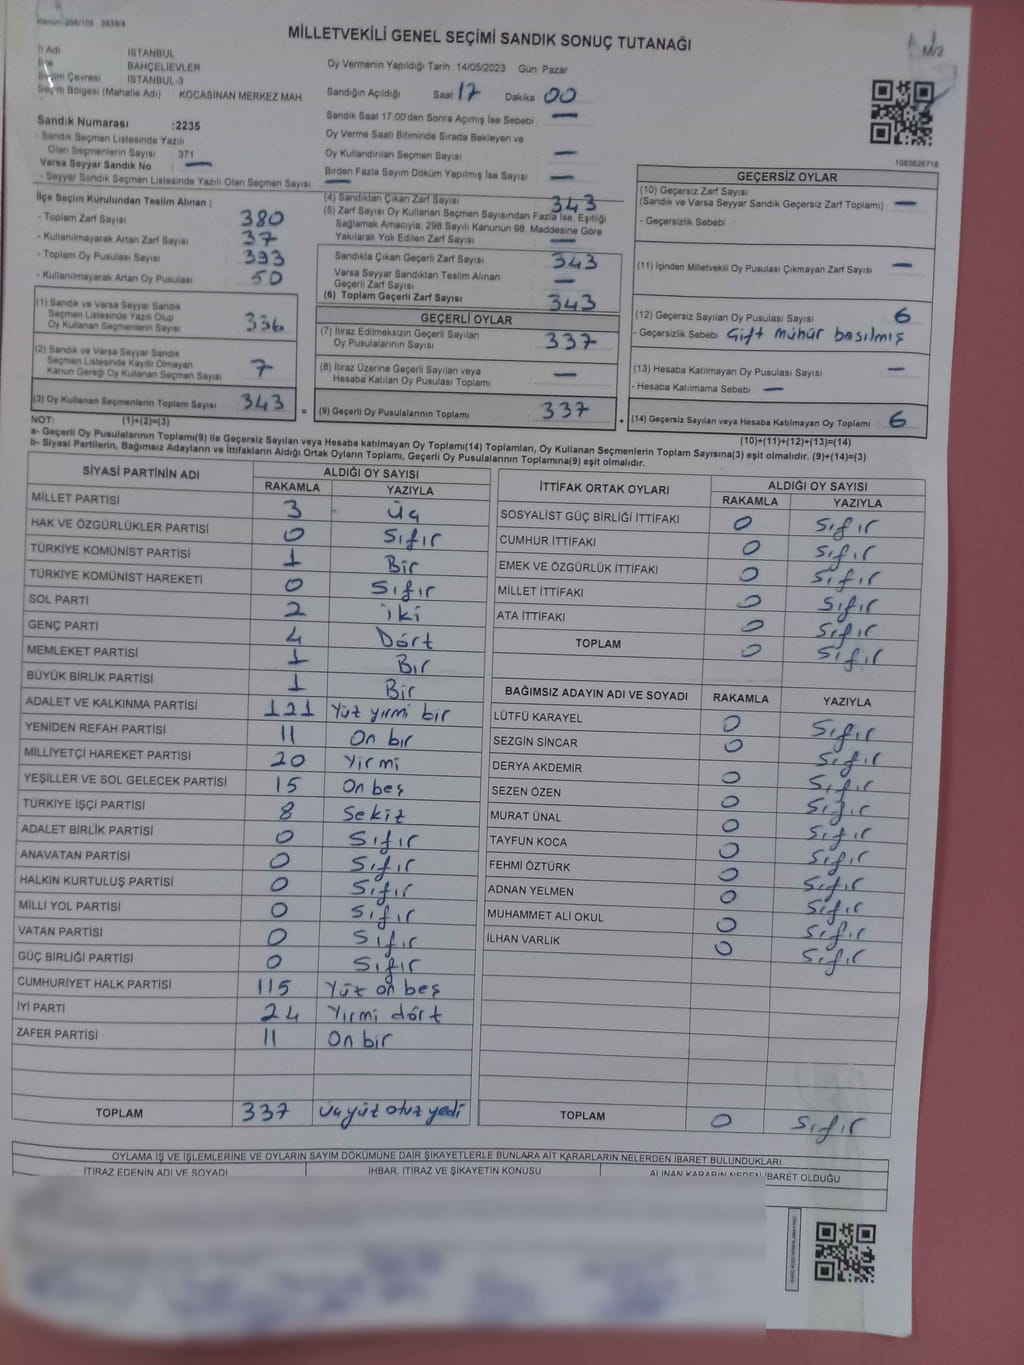 MİLLETVEKİLİ GENEL SEÇİMİ SANDIK SONUÇ TUTANAĞI
M/2
İl Adı İSTANBUL
İlçe BAHÇELİEVLER
Seçim Çevresi İSTANBUL-3
Seçim Bölgesi (Mahalle Adı) KOCASİNAN MERKEZ MAH.
Oy Vermenin Yapıldığı Tarih :14/05/2023 Gün: Pazar
Sandığın Açıldığı Saat 17 Dakika 00
Sandık Saat 17.00'den Sonra Açımış İse Sebebi —
Oy Verme Saati Bitiminde Sırada Bekleyen ve
Oy Kullandırılan Seçmen Sayısı —
Birden Fazla Sayım Döküm Yapılmış İse Sayısı —
1083626718
Sandık Numarası :2235
- Sandık Seçmen Listesinde Yazılı
Olan Seçmenlerin Sayısı 371
Varsa Seyyar Sandık No : —
- Seyyar Sandık Seçmen Listesinde Yazılı Olan Seçmen Sayısı —
İlçe Seçim Kurulundan Teslim Alınan ;
- Toplam Zarf Sayısı 380
- Kullanılmayarak Artan Zarf Sayısı 37
- Toplam Oy Pusulası Sayısı 393
- Kullanılmayarak Artan Oy Pusulası 50
(1) Sandık ve Varsa Seyyar Sandık
Seçmen Listesinde Yazılı Olup
Oy Kullanan Seçmenlerin Sayısı 336
(2) Sandık ve Varsa Seyyar Sandık
Seçmen Listesinde Kayıtlı Olmayan
Kanun Gereği Oy Kullanan Seçmen Sayısı 7
(3) Oy Kullanan Seçmenlerin Toplam Sayısı 343
(4) Sandıktan Çıkan Zarf Sayısı 343
(5) Zarf Sayısı Oy Kullanan Seçmen Sayısından Fazla İse, Eşitliği
Sağlamak Amacıyla; 298 Sayılı Kanunun 98. Maddesine Göre
Yakılarak Yok Edilen Zarf Sayısı —
Sandıkta Çıkan Geçerli Zarf Sayısı 343
Varsa Seyyar Sandıktan Teslim Alınan
Geçerli Zarf Sayısı —
(6) Toplam Geçerli Zarf Sayısı 343
GEÇERLİ OYLAR
(7) İtiraz Edilmeksizin Geçerli Sayılan
Oy Pusulalarının Sayısı 337
(8) İtiraz Üzerine Geçerli Sayılan veya
Hesaba Katılan Oy Pusulası Toplamı —
= (9) Geçerli Oy Pusulalarının Toplamı 337
GEÇERSİZ OYLAR
(10) Geçersiz Zarf Sayısı
(Sandık ve Varsa Seyyar Sandık Geçersiz Zarf Toplamı) —
- Geçersizlik Sebebi :
(11) İçinden Milletvekili Oy Pusulası Çıkmayan Zarf Sayısı —
(12) Geçersiz Sayılan Oy Pusulası Sayısı 6
- Geçersizlik Sebebi Çift mühür basılmış
(13) Hesaba Katılmayan Oy Pusulası Sayısı —
- Hesaba Katılmama Sebebi : —
+ (14) Geçersiz Sayılan veya Hesaba Katılmayan Oy Toplamı 6
NOT: (1)+(2)=(3) (10)+(11)+(12)+(13)=(14)
a- Geçerli Oy Pusulalarının Toplamı(9) ile Geçersiz Sayılan veya Hesaba katılmayan Oy Toplamı(14) Toplamları, Oy Kullanan Seçmenlerin Toplam Sayısına(3) eşit olmalıdır. (9)+(14)=(3)
b- Siyasi Partilerin, Bağımsız Adayların ve İttifakların Aldığı Ortak Oyların Toplamı, Geçerli Oy Pusulalarının Toplamına(9) eşit olmalıdır.
SİYASİ PARTİNİN ADI ALDIĞI OY SAYISI
RAKAMLA YAZIYLA
MİLLET PARTİSİ 3 Üç
HAK VE ÖZGÜRLÜKLER PARTİSİ 0 Sıfır
TÜRKİYE KOMÜNİST PARTİSİ 1 Bir
TÜRKİYE KOMÜNİST HAREKETİ 0 Sıfır
SOL PARTİ 2 iki
GENÇ PARTİ 4 Dört
MEMLEKET PARTİSİ 1 Bir
BÜYÜK BİRLİK PARTİSİ 1 Bir
ADALET VE KALKINMA PARTİSİ 121 Yüz yirmi bir
YENİDEN REFAH PARTİSİ 11 On bir
MİLLİYETÇİ HAREKET PARTİSİ 20 Yirmi
YEŞİLLER VE SOL GELECEK PARTİSİ 15 On beş
TÜRKİYE İŞÇİ PARTİSİ 8 Sekiz
ADALET BİRLİK PARTİSİ 0 Sıfır
ANAVATAN PARTİSİ 0 Sıfır
HALKIN KURTULUŞ PARTİSİ 0 Sıfır
MİLLİ YOL PARTİSİ 0 Sıfır
VATAN PARTİSİ 0 Sıfır
GÜÇ BİRLİĞİ PARTİSİ 0 Sıfır
CUMHURİYET HALK PARTİSİ 115 Yüz on beş
İYİ PARTİ 24 Yirmi dört
ZAFER PARTİSİ 11 On bir
TOPLAM 337 Üçyüz otuz yedi
İTTİFAK ORTAK OYLARI ALDIĞI OY SAYISI
RAKAMLA YAZIYLA
SOSYALİST GÜÇ BİRLİĞİ İTTİFAKI 0 Sıfır
CUMHUR İTTİFAKI 0 Sıfır
EMEK VE ÖZGÜRLÜK İTTİFAKI 0 Sıfır
MİLLET İTTİFAKI 0 Sıfır
ATA İTTİFAKI 0 Sıfır
TOPLAM 0 Sıfır
BAĞIMSIZ ADAYIN ADI VE SOYADI RAKAMLA YAZIYLA
LÜTFÜ KARAYEL 0 Sıfır
SEZGİN SİNCAR 0 Sıfır
DERYA AKDEMİR 0 Sıfır
SEZEN ÖZEN 0 Sıfır
MURAT ÜNAL 0 Sıfır
TAYFUN KOCA 0 Sıfır
FEHMİ ÖZTÜRK 0 Sıfır
ADNAN YELMEN 0 Sıfır
MUHAMMET ALİ OKUL 0 Sıfır
İLHAN VARLIK 0 Sıfır
TOPLAM 0 Sıfır
OYLAMA İŞ VE İŞLEMLERİNE VE OYLARIN SAYIM DÖKÜMÜNE DAİR ŞİKAYETLERLE BUNLARA AİT KARARLARIN NELERDEN İBARET BULUNDUKLARI
İTİRAZ EDENİN ADI VE SOYADI İHBAR, İTİRAZ VE ŞİKAYETİN KONUSU ALINAN KARARIN NEDEN İBARET OLDUĞU